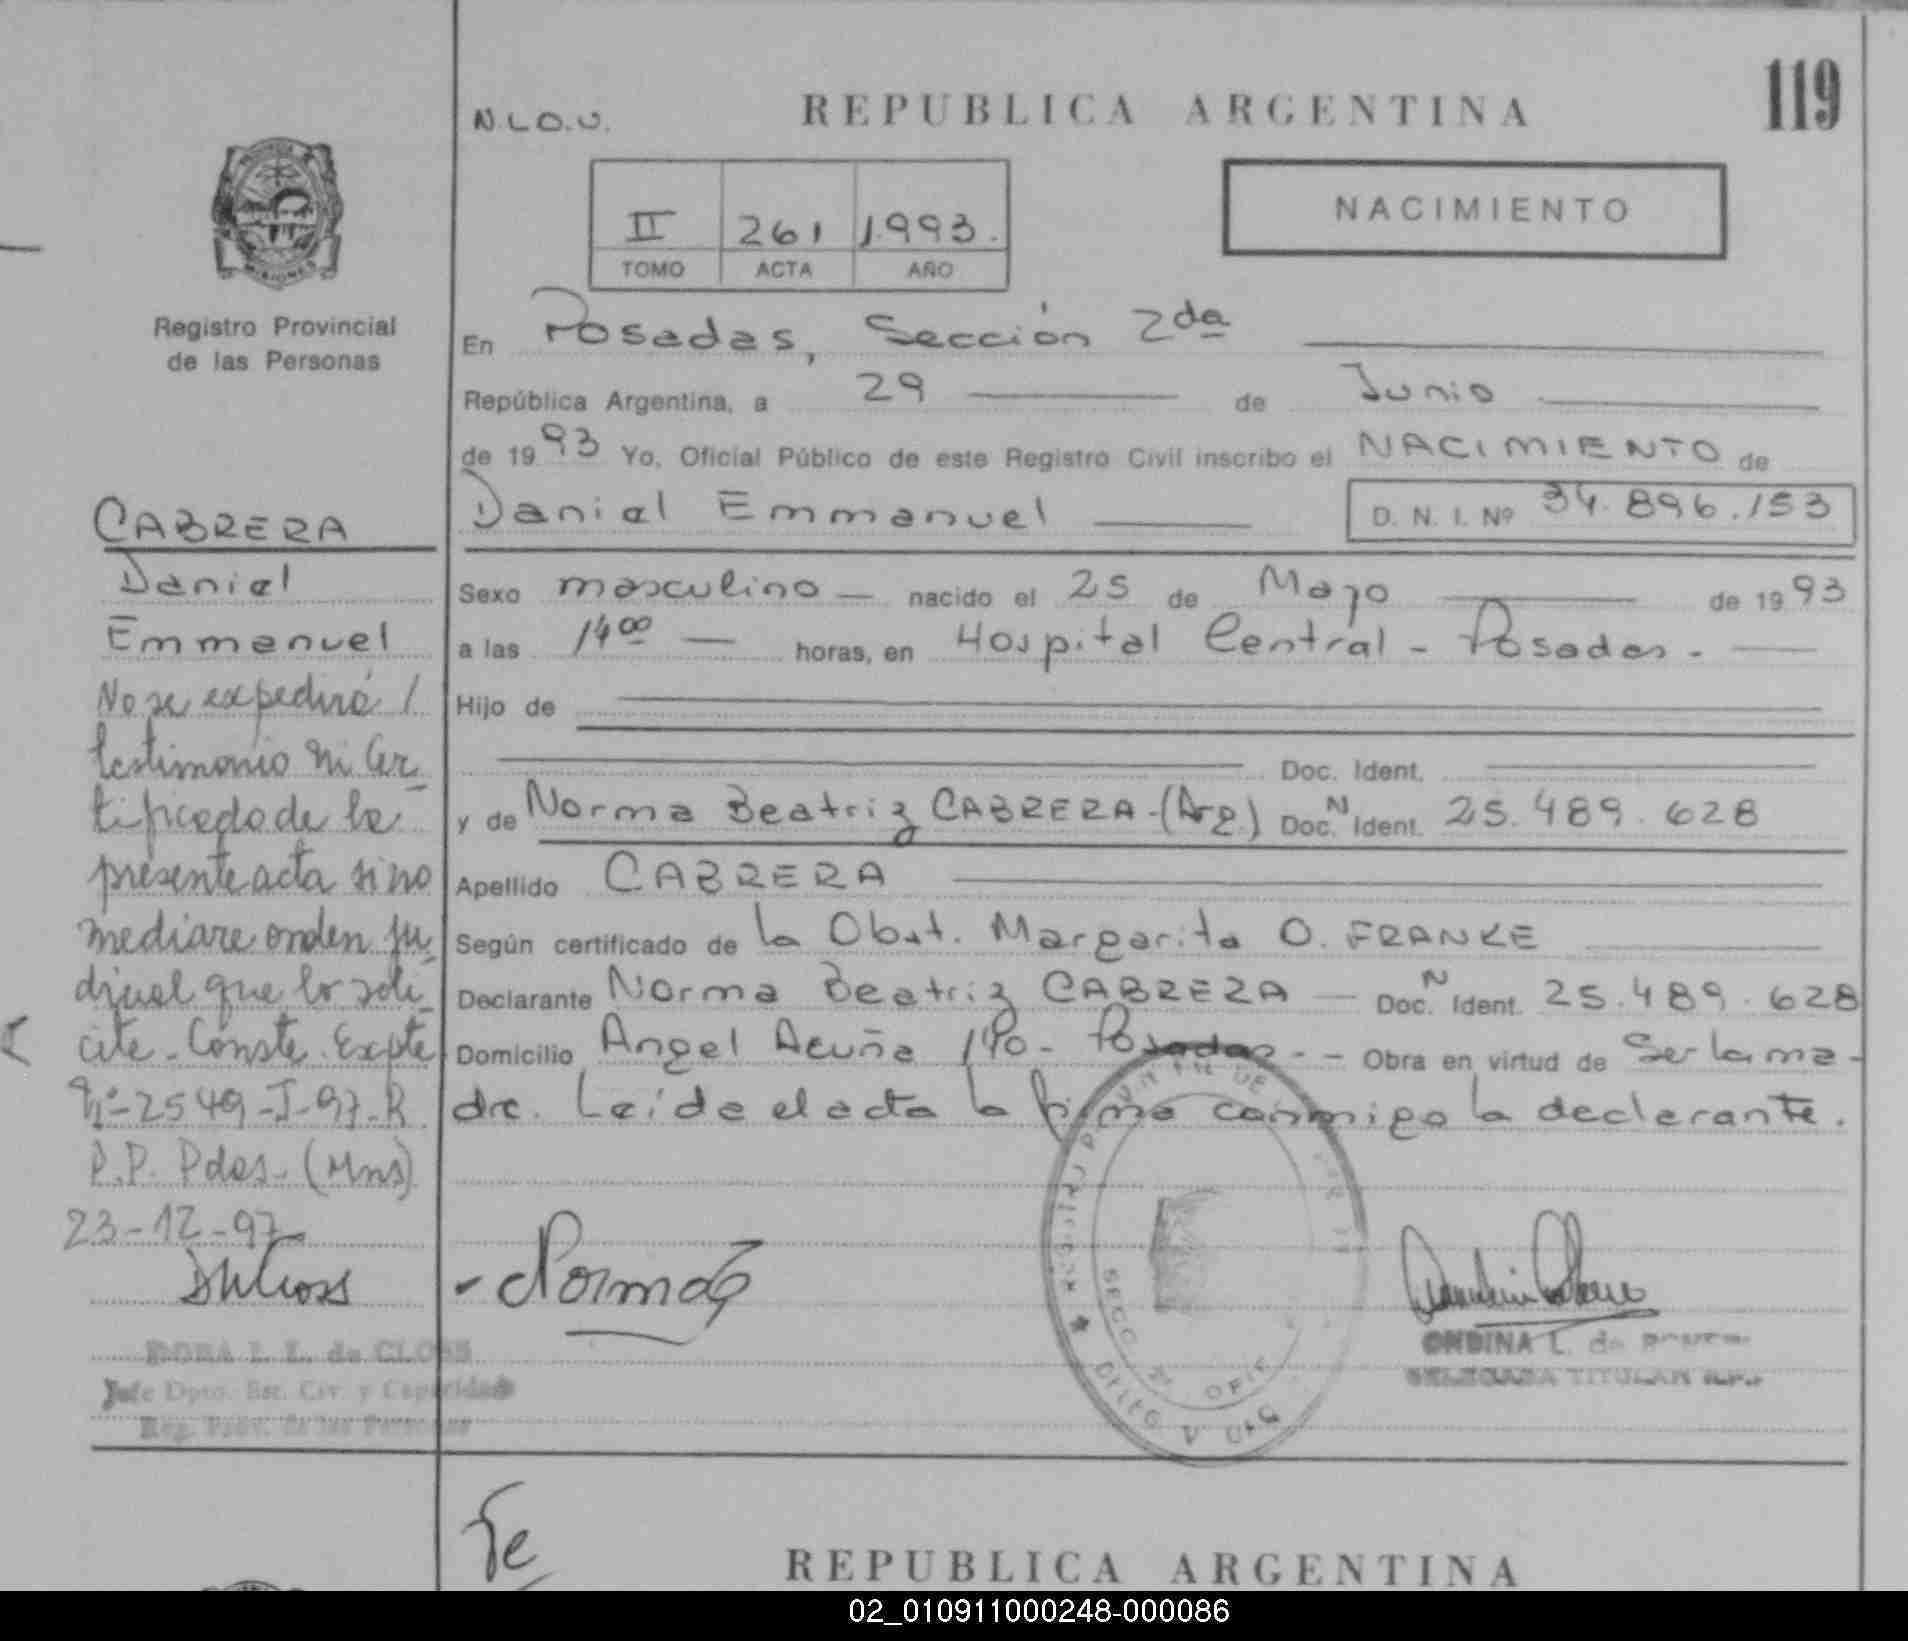 119
N.L.O.U.
REPUBLICA ARGENTINA
II 261 1.993.
TOMO ACTA AÑO
NACIMIENTO
MISIONES
Registro Provincial
de las Personas
En Posadas, Sección 2da
República Argentina, a 29 de Junio
de 1993 Yo, Oficial Público de este Registro Civil inscribo el NACIMIENTO de
Daniel Emmanuel D. N. I. Nº 34.896.153
Sexo masculino nacido el 25 de Mayo de 1993
a las 14 00 horas, en Hospital Central - Posadas.
Hijo de
Doc. Ident.
y de Norma Beatriz CABRERA-(Arg.) Doc. N Ident. 25.489.628
Apellido CABRERA
Según certificado de la Obst. Margarita O. FRANKE
Declarante Norma Beatriz CABRERA Doc. N Ident. 25.489.628
Domicilio Angel Acuña Posadas - Obra en virtud de Ser la ma-
dre. Leída el acta la firma conmigo la declarante.
CABRERA
Daniel
Emmanuel
No se expedirá /
testimonio ni Cer-
tificado de la
presente acta si no
mediare orden ju-
dicial que lo soli-
cite. Conste. Expte
Nº-2549-J-97-R
P.P. Pdas. (Mns)
23-12-97
DORA L. L. de CLOSS
Jefe Dpto. Est. Civ. y Capacidad
Reg. Prov. de las Personas
Norma
ONDINA L. de
DELEGADA TITULAR R.P.P.
REPUBLICA ARGENTINA
02_010911000248-000086